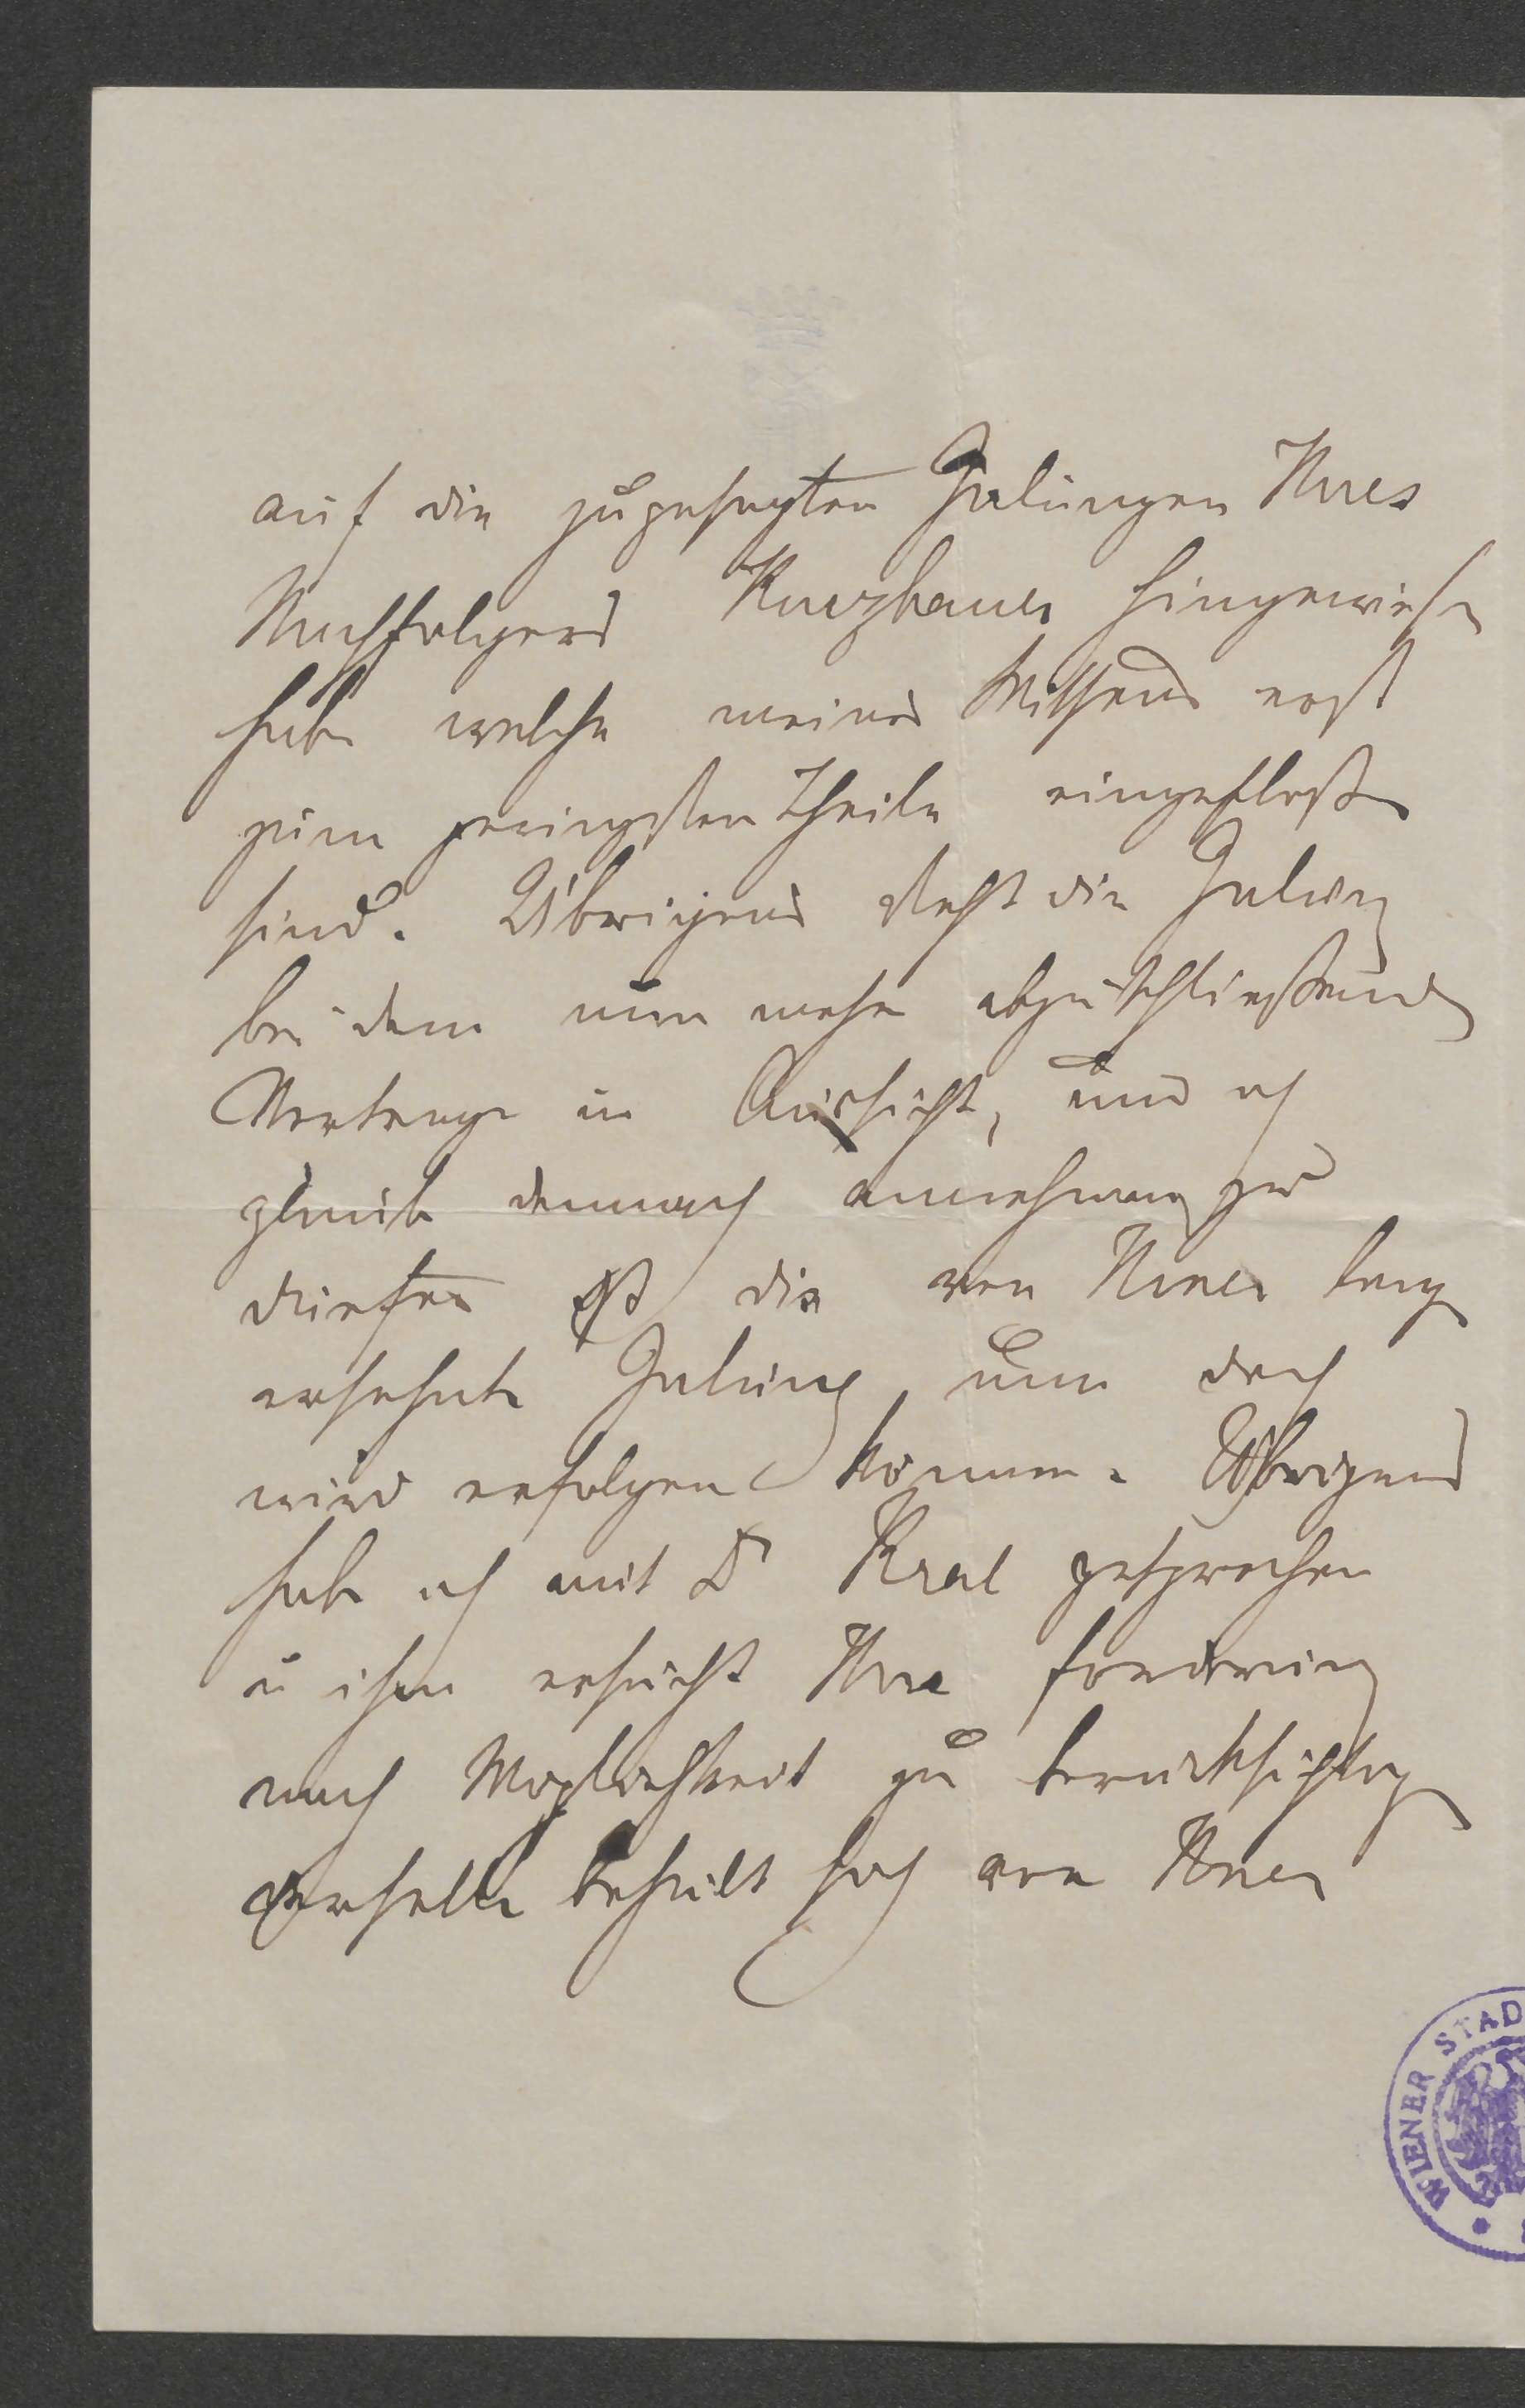 auf die zugesagten Zalungen Ihres
Nachfolgers Kurzbauer hingewiesen
habe welche meines Wissens erst
zum geringsten Theile eingefloßen
sind. Übrigens steht die Zalung
bei dem nun mehr abzuschließenden
Vertrage in Aussicht, und ich
glaube demnach annehmen zu
dürfen daß die von Ihnen lang
ersehnte Zalung nun doch
wird erfolgen können. Übrigens
habe ich mit Dr Kral gesprochen
u ihn ersucht Ihre Forderung
nach Möglichkeit zu berücksichtigen
derselbe behält sich von Ihnen
WIENER STAD